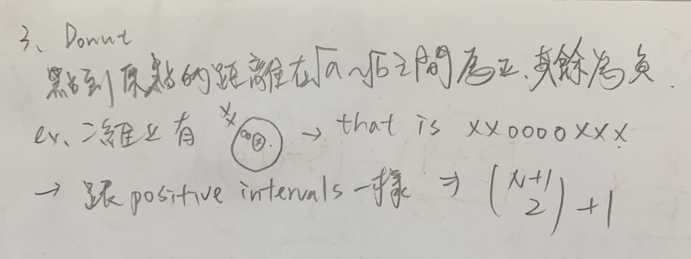 3、Donut
點到原點的距離在√a~√b之間為正、其餘為負.
ex、二維上有 xx oo x → that is xxooooxxx
→ 跟positive intervals一樣 ⇒ (N+1 2)+1